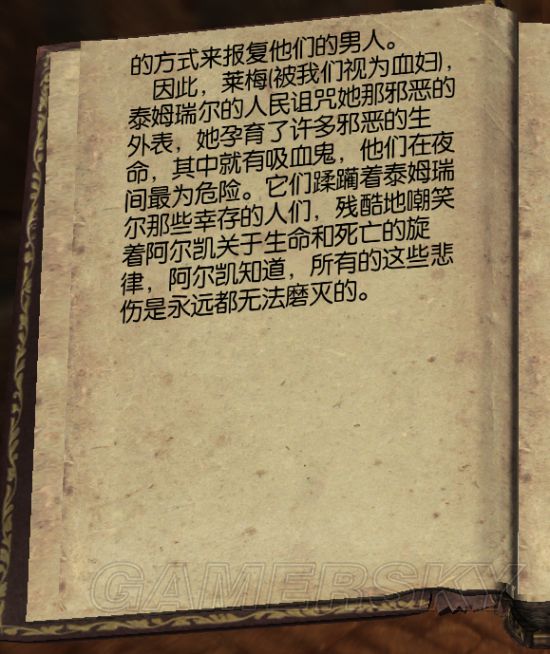 的方式来报复他们的男人。
因此，莱梅(被我们视为血妇)，
泰姆瑞尔的人民诅咒她那邪恶的
外表，她孕育了许多邪恶的生
命，其中就有吸血鬼，他们在夜
间最为危险。它们蹂躏着泰姆瑞
尔那些幸存的人们，残酷地嘲笑
着阿尔凯关于生命和死亡的旋
律，阿尔凯知道，所有的这些悲
伤是永远都无法磨灭的。
GAMERSKY